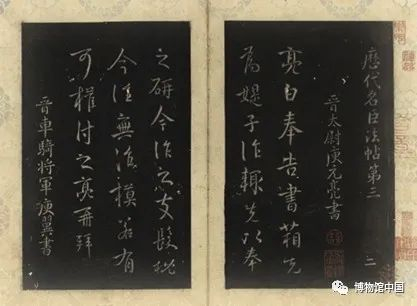 歷代名臣法帖第三
三
晉太尉庾元亮書
亮白奉告書箱先
為媞子作輒先以奉
之研今作之髮枇
今往無模若有
可權付之亮再拜
晉車騎將軍庾翼書
博物馆中国